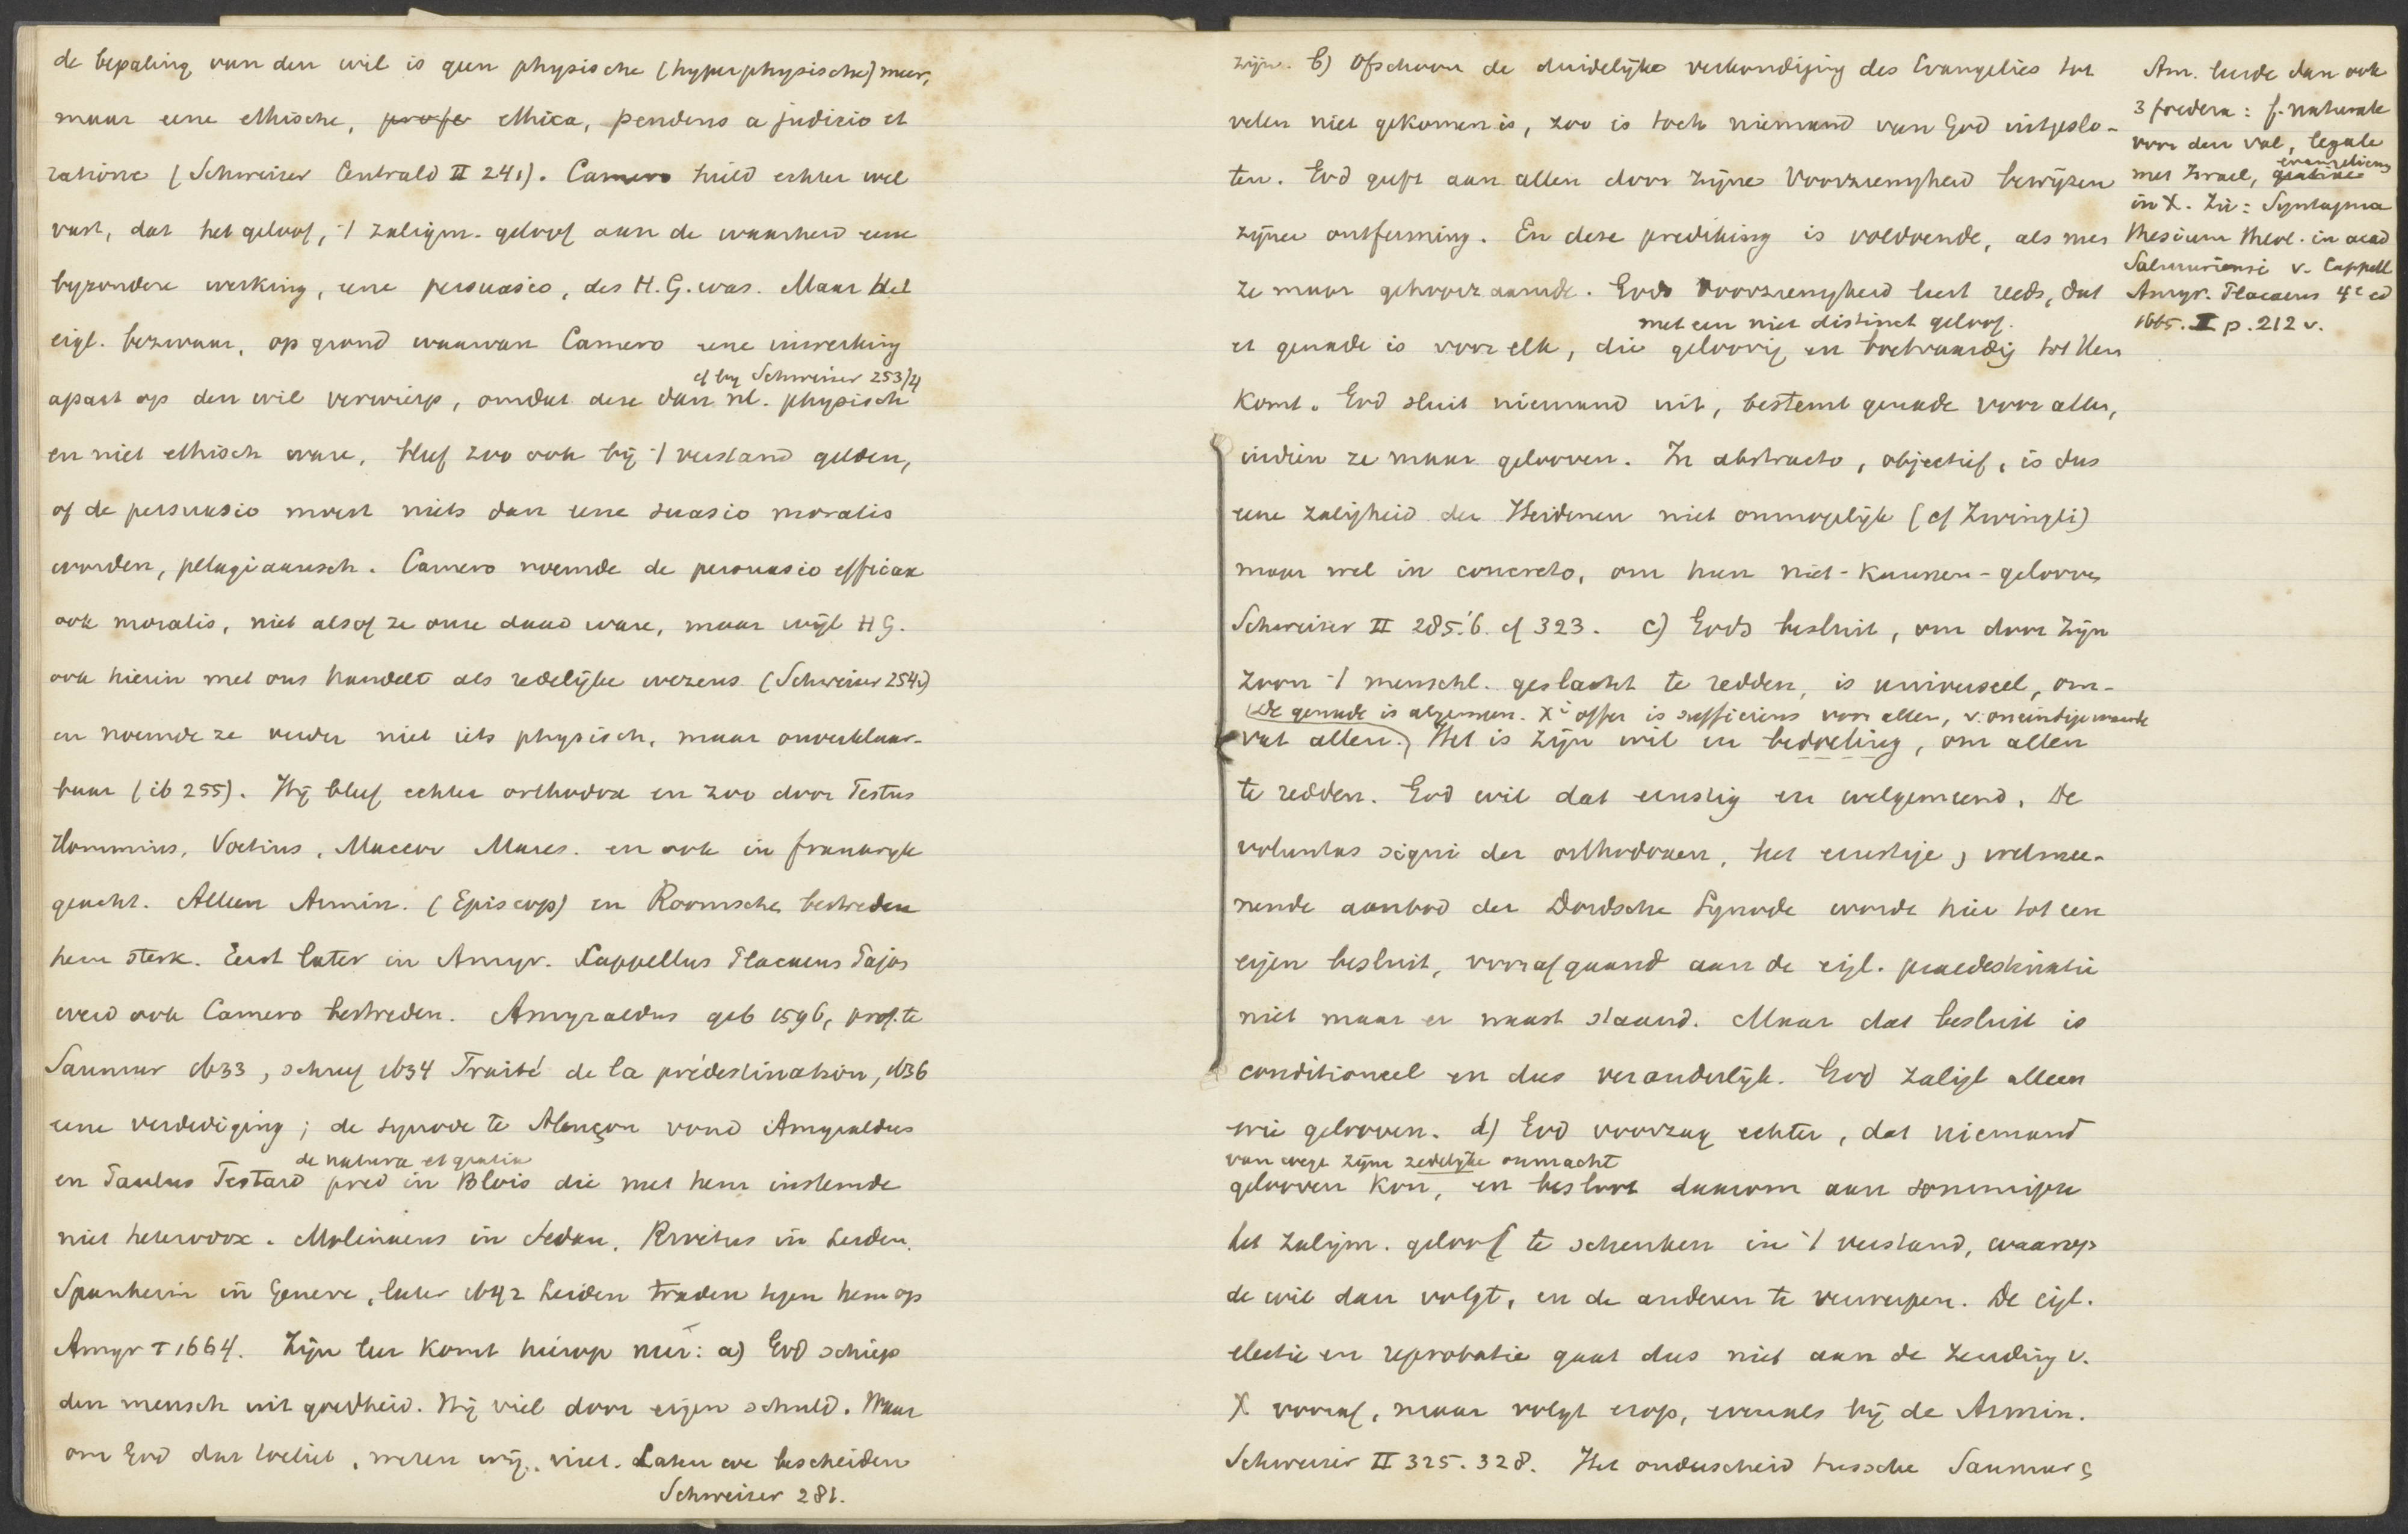 de bepaling van den wil is geen physische (hyperphysische) meer,
maar eene ethische, profe ethica, pendens a judicio et
ratione (Schweizer Centrald II 241). Camero hield echter wel
vast, dat het geloof, 't zaligm. geloof aan de waarheid eene
byzondere werking, eene persuasio, des H.G. was. Maar het
eigl. bezwaar, op grond waarvan Camero eene inwerking
cf by Schweizer 253/4
apart op den wil verwierp, omdat deze dan nl. physisch
en niet ethisch ware, bleef zoo ook bij 't verstand gelden,
of de persuasio moest niets dan eene suasio moralis
worden, pelagiaansch. Camero noemde de persuasio efficax
ook moralis, niet alsof ze onze daad ware, maar wijl H G.
ook hierin met ons handelt als redelijke wezens (Schweizer 254)
en noemde ze verder niet iets physisch, maar onverklaar-
baar (ib 255). Hij bleef echter orthodox en zoo door Festus
Hommius, Voetius, Maccov Mares. en ook in frankryk
geacht. Alleen Armin. (Episcop) en Roomsche bestreden
hem sterk. Eerst later in Amyr. Cappellus Placaeus Pajos
werd ook Camero bestreden. Amyraldus geb 1596, prof. te
Saumur 1633, schreef 1634 Traité de la prédestination, 1636
eene verdediging; de synode te Alençon vond Amyraldus
de natura et gratia
en Paulus Testard pred in Blois die met hem instemde
niet heterodox. Molinaeus in Sedan, Rivetus in Leiden,
Spanheim in Geneve, later 1642 Leiden traden tegen hem op
Amyr † 1664. Zijn leer komt hierop neer: a) God schiep
den mensch uit goedheid. Hij viel door eigen schuld. Maar
om God dat toeliet, weten wij niet. Laten we bescheiden
Schweizer 281.
zijn. b) Ofschoon de duidelijke verkondiging des Evangelies tot
velen niet gekomen is, zoo is toch niemand van God uitgeslo-
ten. God geeft aan allen door zijne Voorzienigheid bewijzen
zijner ontferming. En deze prediking is voldoende, als men
ze maar gehoorzaamde. Gods Voorzienigheid leert reeds, dat
met een niet distinct geloof.
er genade is voor elk, die geloovig en boetvaardig tot Hem
komt. God sluit niemand uit, bestemt genade voor allen,
indien ze maar gelooven. In abstracto, objectief, is dus
eene zaligheid der Heidenen niet onmogelijk (cf Zwingli)
maar wel in concreto, om hun niet-kunnen-gelooven
Schweizer II 285.'6. cf 323. c) Gods besluit, om door Zijn
Zoon 't menschl. geslacht te redden, is universeel, om-
(De genade is algemeen. Xi offer is sufficiens voor allen, v. oneindige waarde
vat allen.) Het is Zijn wil en bedoeling, om allen
te redden. God wil dat ernstig en welgemeend. De
voluntas signi der orthodoxen, het ernstige, welmee-
nende aanbod der Dordsche Synode wordt hier tot een
eigen besluit, voorafgaand aan de eigl. praedestinatie
niet maar er naast staand. Maar dat besluit is
conditioneel en dus veranderlijk. God zaligt alleen
wie gelooven. d) God voorzag echter, dat niemand
van wege zijne zedelijke onmacht
gelooven kon, en besloot daarom aan sommigen
het zaligm. geloof te schenken in 't verstand, waarop
de wil dan volgt, en de anderen te verwerpen. De eigl.
electie en reprobatie gaat dus niet aan de zending v.
X vooraf, maar volgt erop, evenals bij de Armin.
Schweizer II 325. 328. Het onderscheid tussche Saumur &
Am. leerde dan ook
3 foedera: f. naturale
voor den val, legale
evangelicum
met Israel, gratiae
in X. Zie: Syntagma
thesium theol. in acad
Salmuriensi v. Cappell
Amyr. Placaeus 4e ed
1665. II p. 212 v.